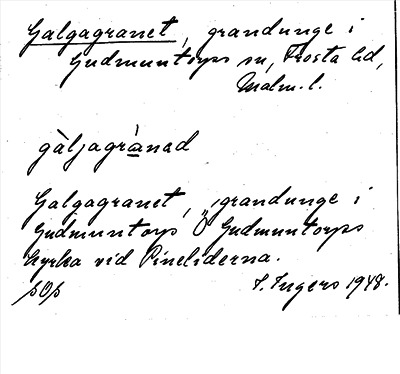 Galgagranet, grandunge i
Gudmuntorps sn, Frosta hd,
Malm. l.
gàljagrànad
Galgagranet, grandunge i
Gudmuntorps Ö Gudmuntorps
kyrka vid Pineliderna.
I. Ingers 1948.